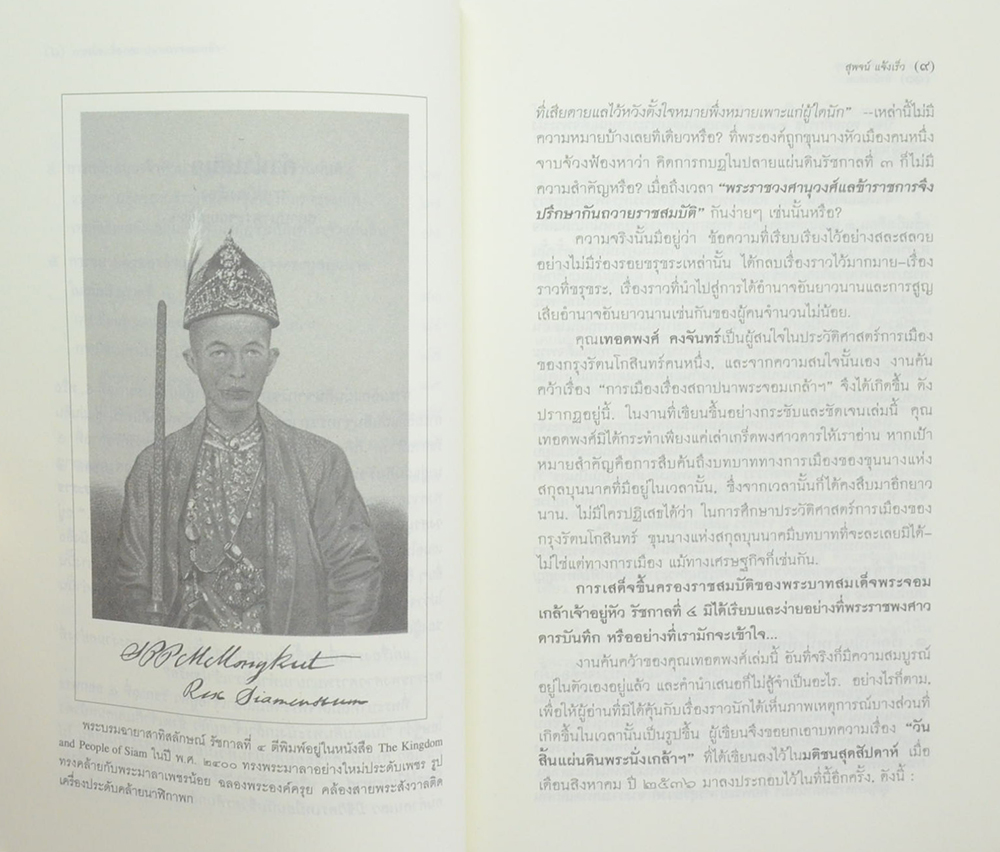 SPPM Mongkut
Rex Siamensium
พระบรมฉายาสาทิสลักษณ์ รัชกาลที่ ๔ ตีพิมพ์อยู่ในหนังสือ The Kingdom
and People of Siam ในปี พ.ศ. ๒๔๐๐ ทรงพระมาลาอย่างใหม่ประดับเพชร รูป
ทรงคล้ายกับพระมาลาเพชรน้อย ฉลองพระองค์ครุย คล้องสายพระสังวาลติด
เครื่องประดับคล้ายนาฬิกาพก
สุพจน์ แจ้งเร็ว (๙)
ที่เสียดายแลไว้หวังตั้งใจหมายพึ่งหมายเพาะแก่ผู้ใดนัก” --เหล่านี้ไม่มี
ความหมายบ้างเลยทีเดียวหรือ? ที่พระองค์ถูกขุนนางหัวเมืองคนหนึ่ง
จาบจ้วงฟ้องหาว่า คิดการกบฏในปลายแผ่นดินรัชกาลที่ ๓ ก็ไม่มี
ความสำคัญหรือ? เมื่อถึงเวลา “พระราชวงศานุวงศ์แลข้าราชการจึง
ปรึกษากันถวายราชสมบัติ” กันง่ายๆ เช่นนั้นหรือ?
ความจริงนั้นมีอยู่ว่า ข้อความที่เรียบเรียงไว้อย่างสละสลวย
อย่างไม่มีร่องรอยขรุขระเหล่านั้น ได้กลบเรื่องราวไว้มากมาย-เรื่อง
ราวที่ขรุขระ, เรื่องราวที่นำไปสู่การได้อำนาจอันยาวนานและการสูญ
เสียอำนาจอันยาวนานเช่นกันของผู้คนจำนวนไม่น้อย.
คุณเทอดพงศ์ คงจันทร์เป็นผู้สนใจในประวัติศาสตร์การเมือง
ของกรุงรัตนโกสินทร์คนหนึ่ง, และจากความสนใจนั้นเอง งานค้น
คว้าเรื่อง “การเมืองเรื่องสถาปนาพระจอมเกล้าฯ” จึงได้เกิดขึ้น ดัง
ปรากฏอยู่นี้. ในงานที่เขียนขึ้นอย่างกระชับและชัดเจนเล่มนี้ คุณ
เทอดพงศ์มิได้กระทำเพียงแค่เล่าเกร็ดพงศาวดารให้เราอ่าน หากเป้า
หมายสำคัญคือการสืบค้นถึงบทบาททางการเมืองของขุนนางแห่ง
สกุลบุนนาคที่มีอยู่ในเวลานั้น, ซึ่งจากเวลานั้นก็ได้คงสืบมาอีกยาว
นาน. ไม่มีใครปฏิเสธได้ว่า ในการศึกษาประวัติศาสตร์การเมืองของ
กรุงรัตนโกสินทร์ ขุนนางแห่งสกุลบุนนาคมีบทบาทที่จะละเลยมิได้-
ไม่ใช่แต่ทางการเมือง แม้ทางเศรษฐกิจก็เช่นกัน.
การเสด็จขึ้นครองราชสมบัติของพระบาทสมเด็จพระจอม
เกล้าเจ้าอยู่หัว รัชกาลที่ ๔ มิได้เรียบและง่ายอย่างที่พระราชพงศาว
ดารบันทึก หรืออย่างที่เรามักจะเข้าใจ...
งานค้นคว้าของคุณเทอดพงศ์เล่มนี้ อันที่จริงก็มีความสมบูรณ์
อยู่ในตัวเองอยู่แล้ว และคำนำเสนอก็ไม่สู้จำเป็นอะไร. อย่างไรก็ตาม,
เพื่อให้ผู้อ่านที่มิได้คุ้นกับเรื่องราวนักได้เห็นภาพเหตุการณ์บางส่วนที่
เกิดขึ้นในเวลานั้นเป็นรูปขึ้น ผู้เขียนจึงขอยกเอาบทความเรื่อง “วัน
สิ้นแผ่นดินพระนั่งเกล้าฯ” ที่ได้เขียนลงไว้ในมติชนสุดสัปดาห์ เมื่อ
เดือนสิงหาคม ปี ๒๕๓๖ มาลงประกอบไว้ในที่นี้อีกครั้ง, ดังนี้ :